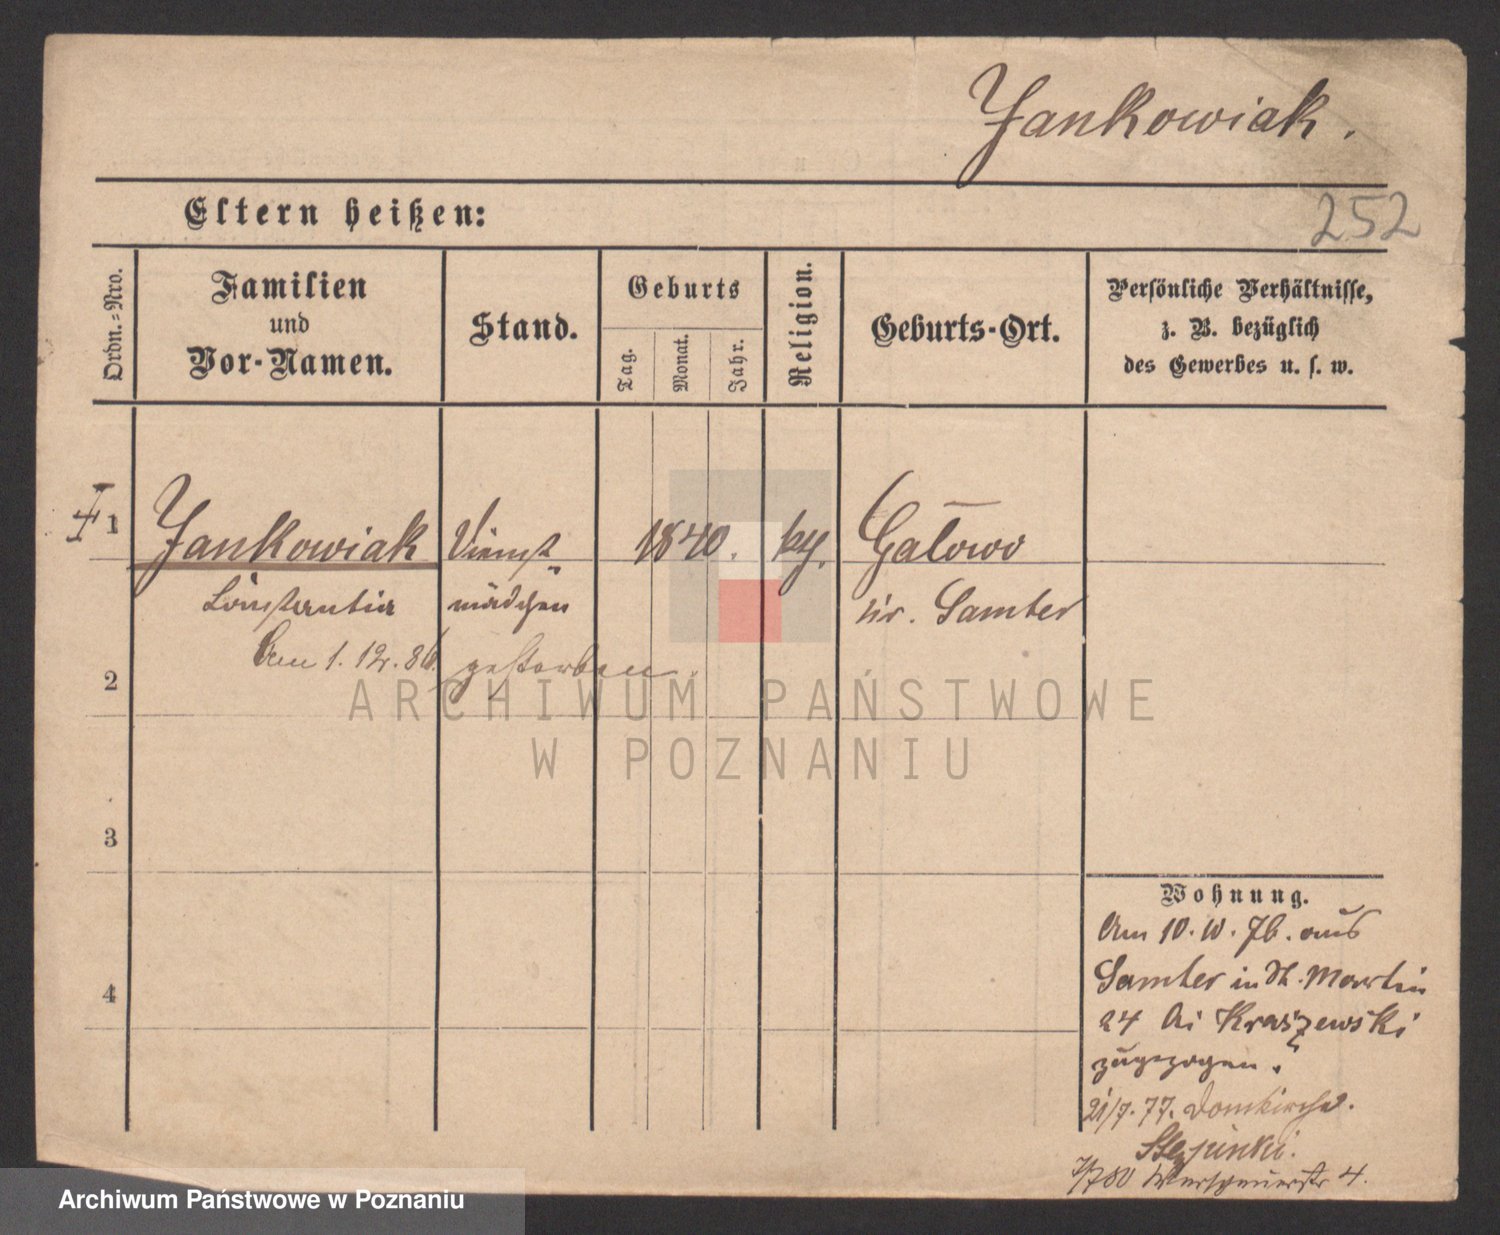 Jankowiak.
252
Eltern heißen:
Ordn.-Nro.
Familien
und
Vor-Namen.
Stand.
Geburts
Tag.
Monat.
Jahr.
Religion.
Geburts-Ort.
Persönliche Verhältnisse,
z. B. bezüglich
des Gewerbes u. s. w.
1 Jankowiak Dienst 1840. Galowo
Constantia mädchen Kr. Samter
Am 1. 12. 86. gestorben.
2
ARCHIWUM PAŃSTWOWE
W POZNANIU
3
Wohnung.
Am 10. 10. 76. aus
Samter in St. Martin
24 bei Kraszewski
zugezogen.
21/7. 77. Domkirche.
4
7/7 80 4.
Archiwum Państwowe w Poznaniu